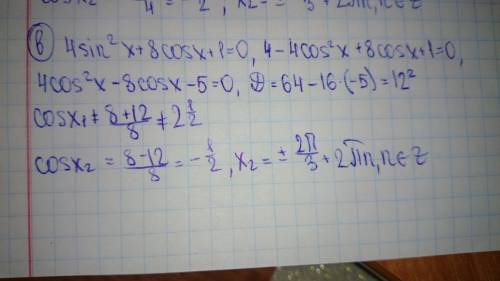 cosx₂ = 4 = -2, x₂ = 3 + 2πn, n∈Z
в) 4sin²x+8cosx+1=0, 4-4cos²x+8cosx+1=0,
4cos²x-8cosx-5=0, D=64-16·(-5)=12²
cosx₁ ≠ 8+12/8 ≠ 2 1/2
cosx₂ = 8-12/8 = -1/2, x₂ = ± 2π/3 + 2πn, n∈Z